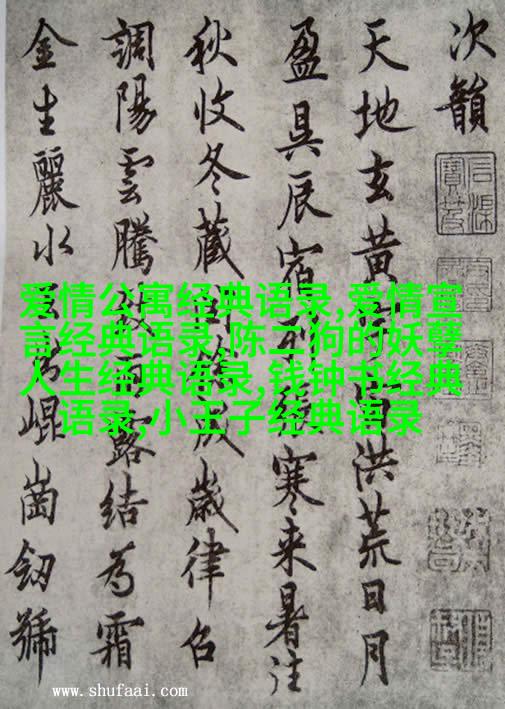 次韻
天地玄黄宙洪荒日月
盈昃辰宿列寒来暑往
秋收冬藏餘成歲律召
調陽雲騰致雨露結為霜
金生麗水出崐崗劒號
爱情公寓经典语录,爱情宣
言经典语录,陈二狗的妖孽
人生经典语录,钱钟书经典
语录,小王子经典语录
www.shufaai.com